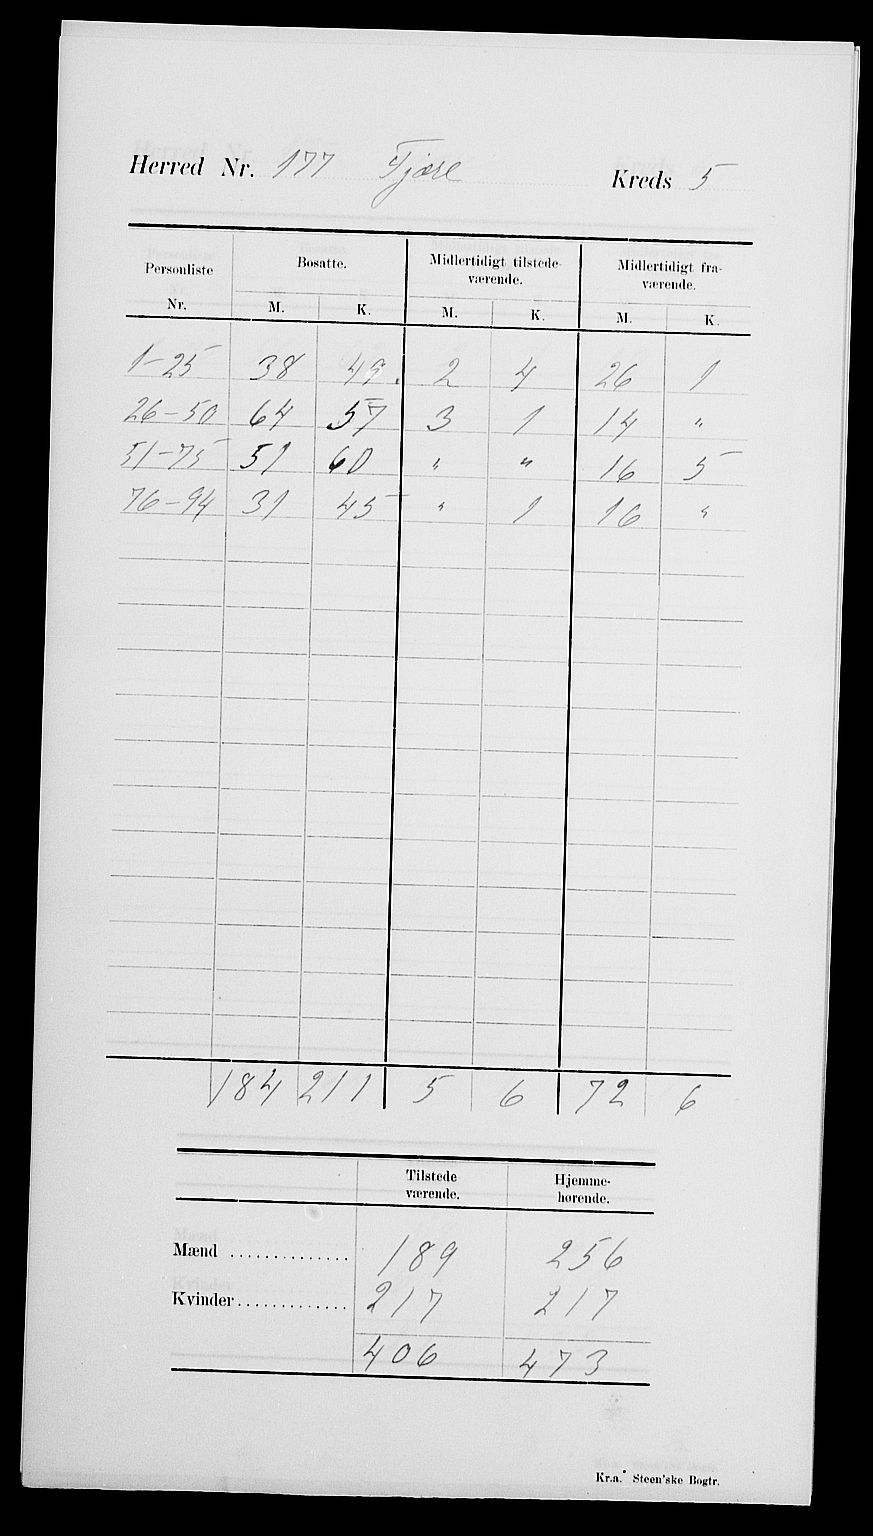 Herred Nr. 177 Fjære Kreds 5
Personliste Nr. Bosatte. Midlertidigt tilstede- værende. Midlertidigt fra- værende.
M. K. M. K. M. K.
1-25 38 49. 2 4 26 1
26-50 64 57 3 1 14 "
51-75 51 60 " " 16 5
76-94 31 45 " 1 16 "
184 211 5 6 72 6
Tilstede værende. Hjemme- hørende.
Mænd .............. 189 256
Kvinder............. 217 217
406 473
Kr.a. Steen'ske Bogtr.